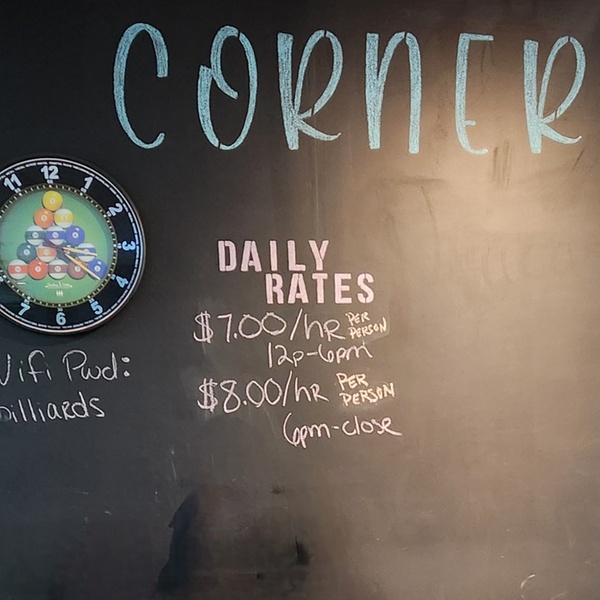 CORNER
11 12 1
2
3
4
5
6
7
DAILY
RATES
$7.00/hR PER PERSON
12p-6pm
$8.00/hR PER PERSON
6pm-close
Wifi Pwd:
billiards